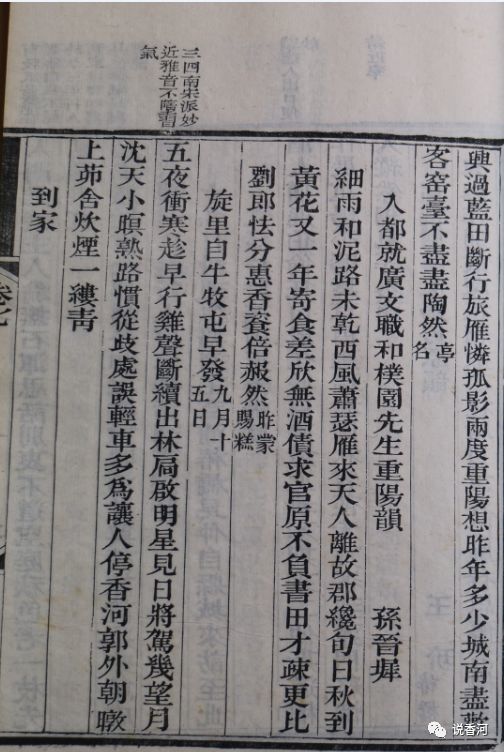 興過藍田斷行旅雁憐孤影兩度重陽想昨年多少城南盡
客窑臺不盡盡陶然亭名
入都就廣文職和樸園先生重陽韻　孫晉墀
細雨和泥路未乾西風蕭瑟雁來天人離故郡纔旬日秋到
黃花又一年寄食差欣無酒債求官原不負書田才疎更比
劉郎怯分惠香餈倍赧然昨蒙賜糕
旋里自牛牧屯早發九月十五日
三四南宋派妙
近雅音不蔭書
氣
五夜衝寒趁早行雞聲斷續出林扃啟明星見日將駕幾望月
沈天小暝熟路慣從歧處誤輕車多為讓人停香河郭外朝暾
上茆舍炊煙一縷青
到家
说香河